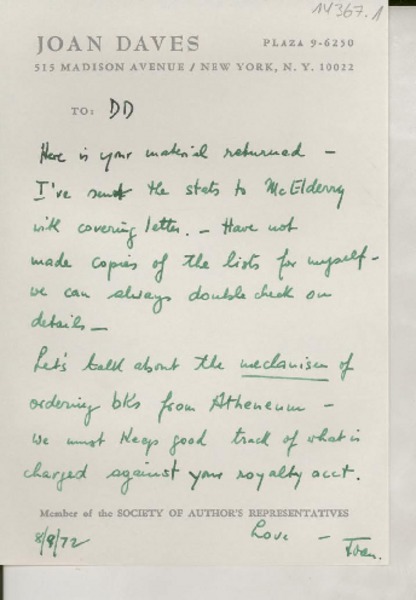 14367.1
JOAN DAVES
PLAZA 9-6250
515 MADISON AVENUE / NEW YORK, N. Y. 10022
TO: DD
Here is your material returned —
I've sent the stats to McElderry
with covering letter. — Have not
made copies of the lists for myself —
we can always double check on
details —
Let's talk about the mechanism of
ordering bks from Atheneum —
we must keep good track of what is
charged against your royalty acct.
Member of the SOCIETY OF AUTHOR'S REPRESENTATIVES
Love —
8/8/72
Joan.